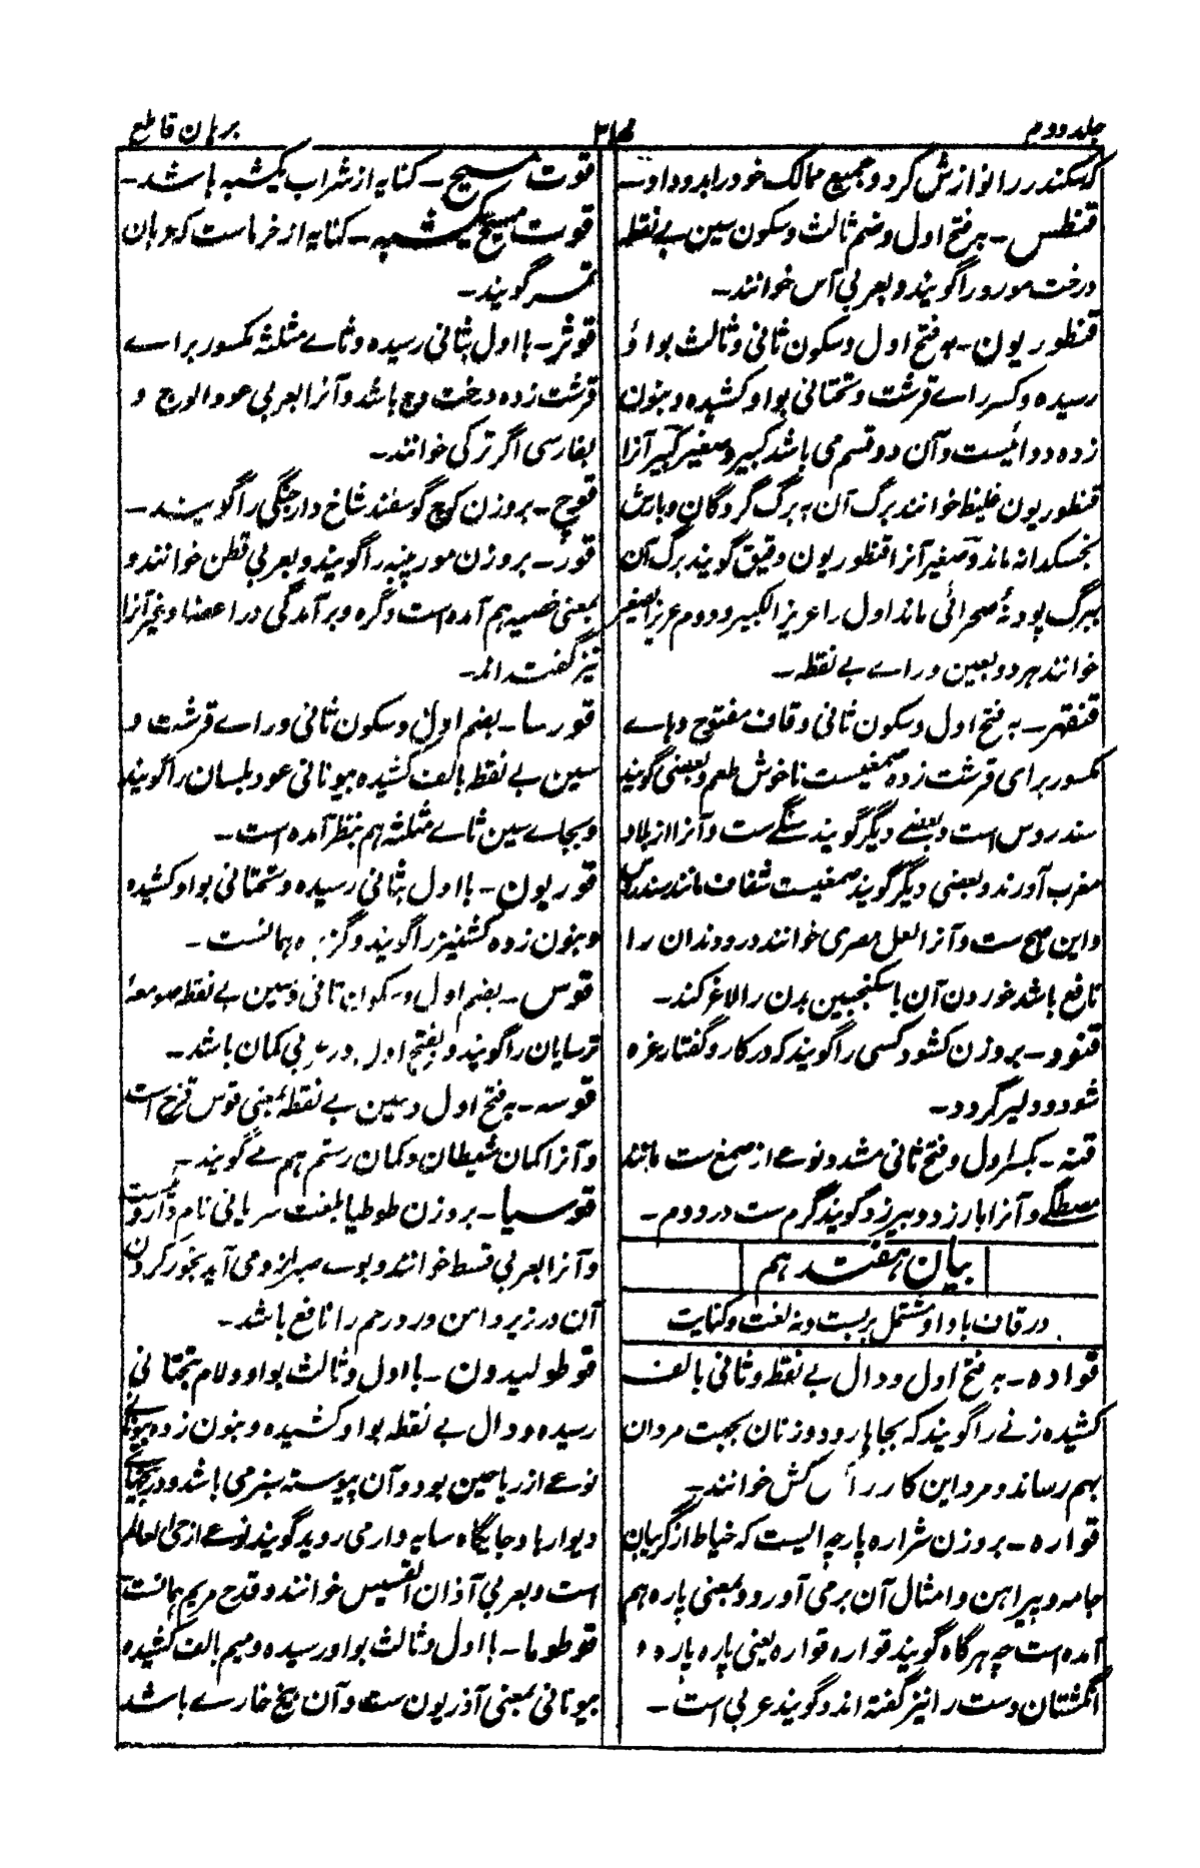 جلد دوم
برہان قاطع
کہ سکندر را نوازش کرد و جمیع ممالک خود را بدو داد ـ
قنطس ـ بہ فتح اول و ضم ثالث و سکون سین بے نقطہ
درخت مورد را گویند و بعربی آس خوانند ـ
قنطوریون ـ بہ فتح اول و سکون ثانی و ثالث بواو
رسیدہ و کسر راے قرشت و تحتانی بواو کشیدہ و بنون
زدہ دوائیست و آن دو قسم می باشد کبیر و صغیر کبیر آنرا
قنطوریون غلیظ خوانند برگ آن بہ برگ گردگان و بارش
بخسکدانہ ماند و صغیر آنرا قنطوریون دقیق گویند برگ آن
ببرگ پودنۂ صحرائی ماند اول را عزیز الکبیر و دوم عزیز الصغیر
خوانند ہر دو بعین و راے بے نقطہ ـ
قنقہر ـ بہ فتح اول و سکون ثانی و قاف مفتوح و ہاے
مکسور برای قرشت زدہ صمغیست ناخوش طعم و بعضی گویند
سندروس است و بعضے دیگر گویند سنگے ست و آنرا از بلاد
مغرب آورند و بعضی دیگر گویند صمغیست شفاف مانند سندروس
و این صحیح ست و آنرا لعل مصری خوانند درد دندان را
نافع باشد خوردن آن با سکنجبین بدن را لاغر کند ـ
قنود ـ بروزن کشود کسی را گویند کہ در کار و گفتار غرہ
شود و دلیر گردد ـ
قنہ ـ بکسر اول و فتح ثانی مشدد نوعے از صمغ ست مانند
مصطکے و آنرا بارزد و بیرزد گویند گرم ست در دوم ـ
بیان ہفتدہم
در قاف با واو مشتمل بر بیست و نہ لغت و کنایت
قوادہ ـ بہ فتح اول و دال بے نقطہ و ثانی بالف
کشیدہ زنے را گویند کہ بجاہا رود و زنان بجہت مردان
بہم رساند و مرد این کار را کش خوانند ـ
قوارہ ـ بروزن شرارہ پارچہ ایست کہ خیاط از گریبان
جامہ و پیراہن و امثال آن برمی آورد و بمعنی پارہ ہم
آمدہ است چہ ہرگاہ گویند قوارہ قوارہ یعنی پارہ پارہ و
انگشتان دست را نیز گفتہ اند و گویند عربی است ـ
قوت مسیح ـ کنایہ از شراب یکشبہ باشد ـ
قوت مسیح یکشبہ ـ کنایہ از خرماست کہ بران
تمر گویند ـ
قوثر ـ با اول بثانی رسیدہ و ثاے مثلثہ مکسور براے
قرشت زدہ درخت وج باشد و آنرا بعربی عود الوج و
بفارسی اگر ترکی خوانند ـ
قوچ ـ بروزن کوچ گوسفند شاخ دار جنگی را گویند ـ
قور ـ بروزن مور پنبہ را گویند و بعربی قطن خوانند و
بمعنی خصیہ ہم آمدہ است و گرہ و برآمدگی در اعضا و غیر آنرا
نیز گفتہ اند ـ
قورسا ـ بضم اول و سکون ثانی و راے قرشت و
سین بے نقطہ بالف کشیدہ بیونانی عود بلسان را گویند
و بجاے سین ثاے مثلثہ ہم بنظر آمدہ است ـ
قوریون ـ با اول بثانی رسیدہ و تحتانی بواو کشیدہ
و بنون زدہ کشنیز را گویند و گزبرہ ہمانست ـ
قوس ـ بضم اول و سکون ثانی و سین بے نقطہ صومعۂ
ترسایان را گویند و بفتح اول در عربی کمان باشد ـ
قوسہ ـ بہ فتح اول و سین بے نقطہ بمعنی قوس قزح است
و آنرا کمان شیطان و کمان رستم ہم مے گویند ـ
قوسیا ـ بروزن طوطیا بلغت سریانی نام داروئیست
و آنرا بعربی قسط خوانند و بوے صبر ازو می آید بخور کردن
آن در زیر دامن درد رحم را نافع باشد ـ
قوطولیدون ـ با اول و ثالث بواو و لام بتحتانی
رسیدہ و دال بے نقطہ بواو کشیدہ و بنون زدہ بیونانی
نوعے از ریاحین بود و آن پیوستہ سبز می باشد و در بیخہاے
دیوارہا و جایگاہ سایہ دار می روید گویند نوعے از حی العالم
است و بعربی آذان القسیس خوانند و قدح مریم ہمانست
قوطوما ـ با اول و ثالث بواو رسیدہ و میم بالف کشیدہ
بیونانی بمعنی آذریون ست و آن بیخ خارے باشد